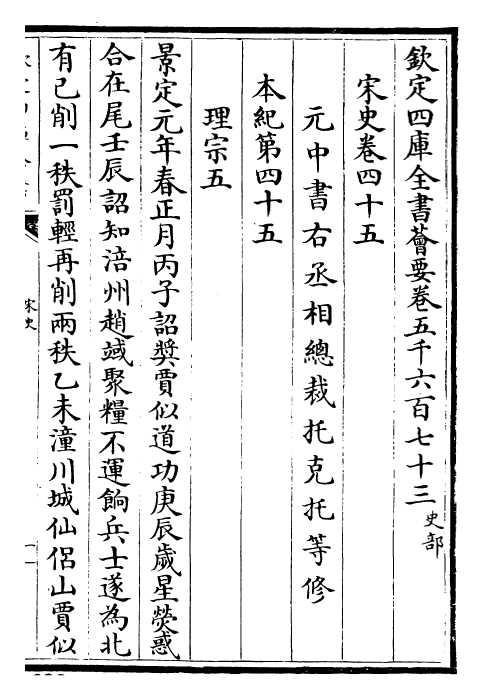 欽定四庫全書薈要卷五千六百七十三 史部
宋史卷四十五
元中書右丞相總裁托克托等修
本紀第四十五
理宗五
景定元年春正月丙子詔獎賈似道功庚辰歲星熒惑
合在尾壬辰詔知涪州趙㦤聚糧不運餉兵士遂為北
有已削一秩罰輕再削兩秩乙未潼川城仙侶山賈似
宋史